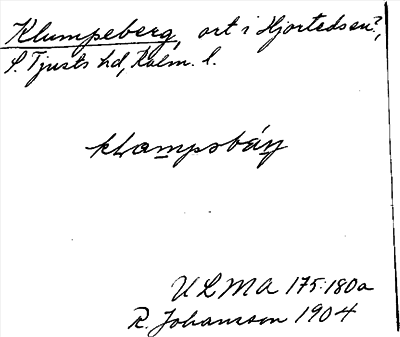 Klumpeberg, ort i Hjortedsen?,
S. Tjusts hd, Kalm. l.
kLampsbáŋ
ULMA 175:180a
R. Johansson 1904